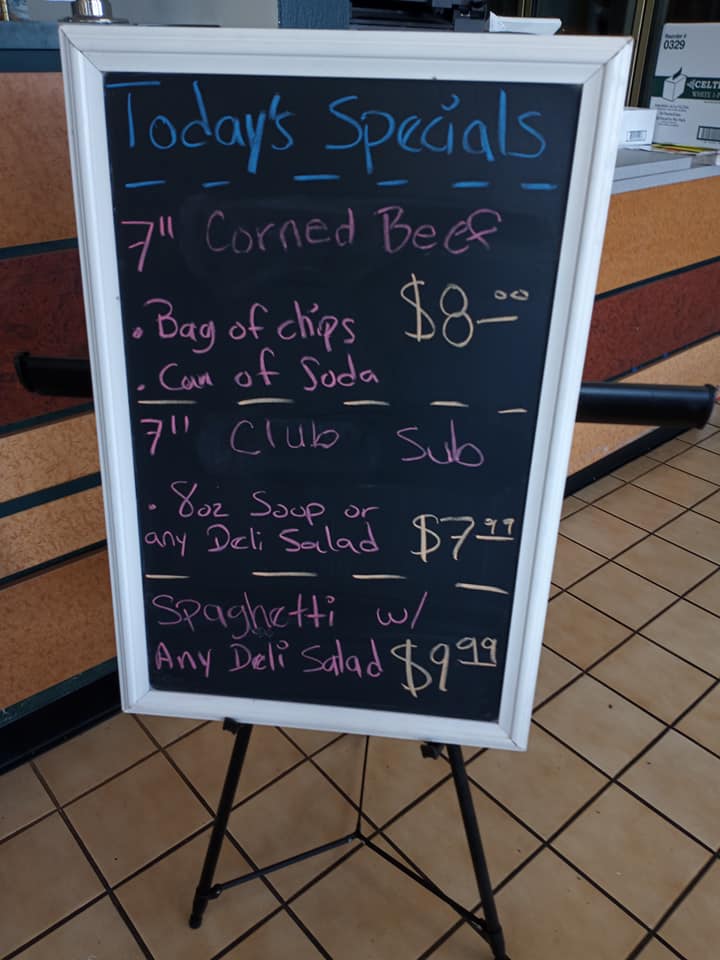 Today's Specials
7" Corned Beef
• Bag of chips $8.00
• Can of Soda
7" Club Sub
• 8oz Soup or
any Deli Salad $7.99
Spaghetti w/
Any Deli Salad $9.99
Reorder #
0329